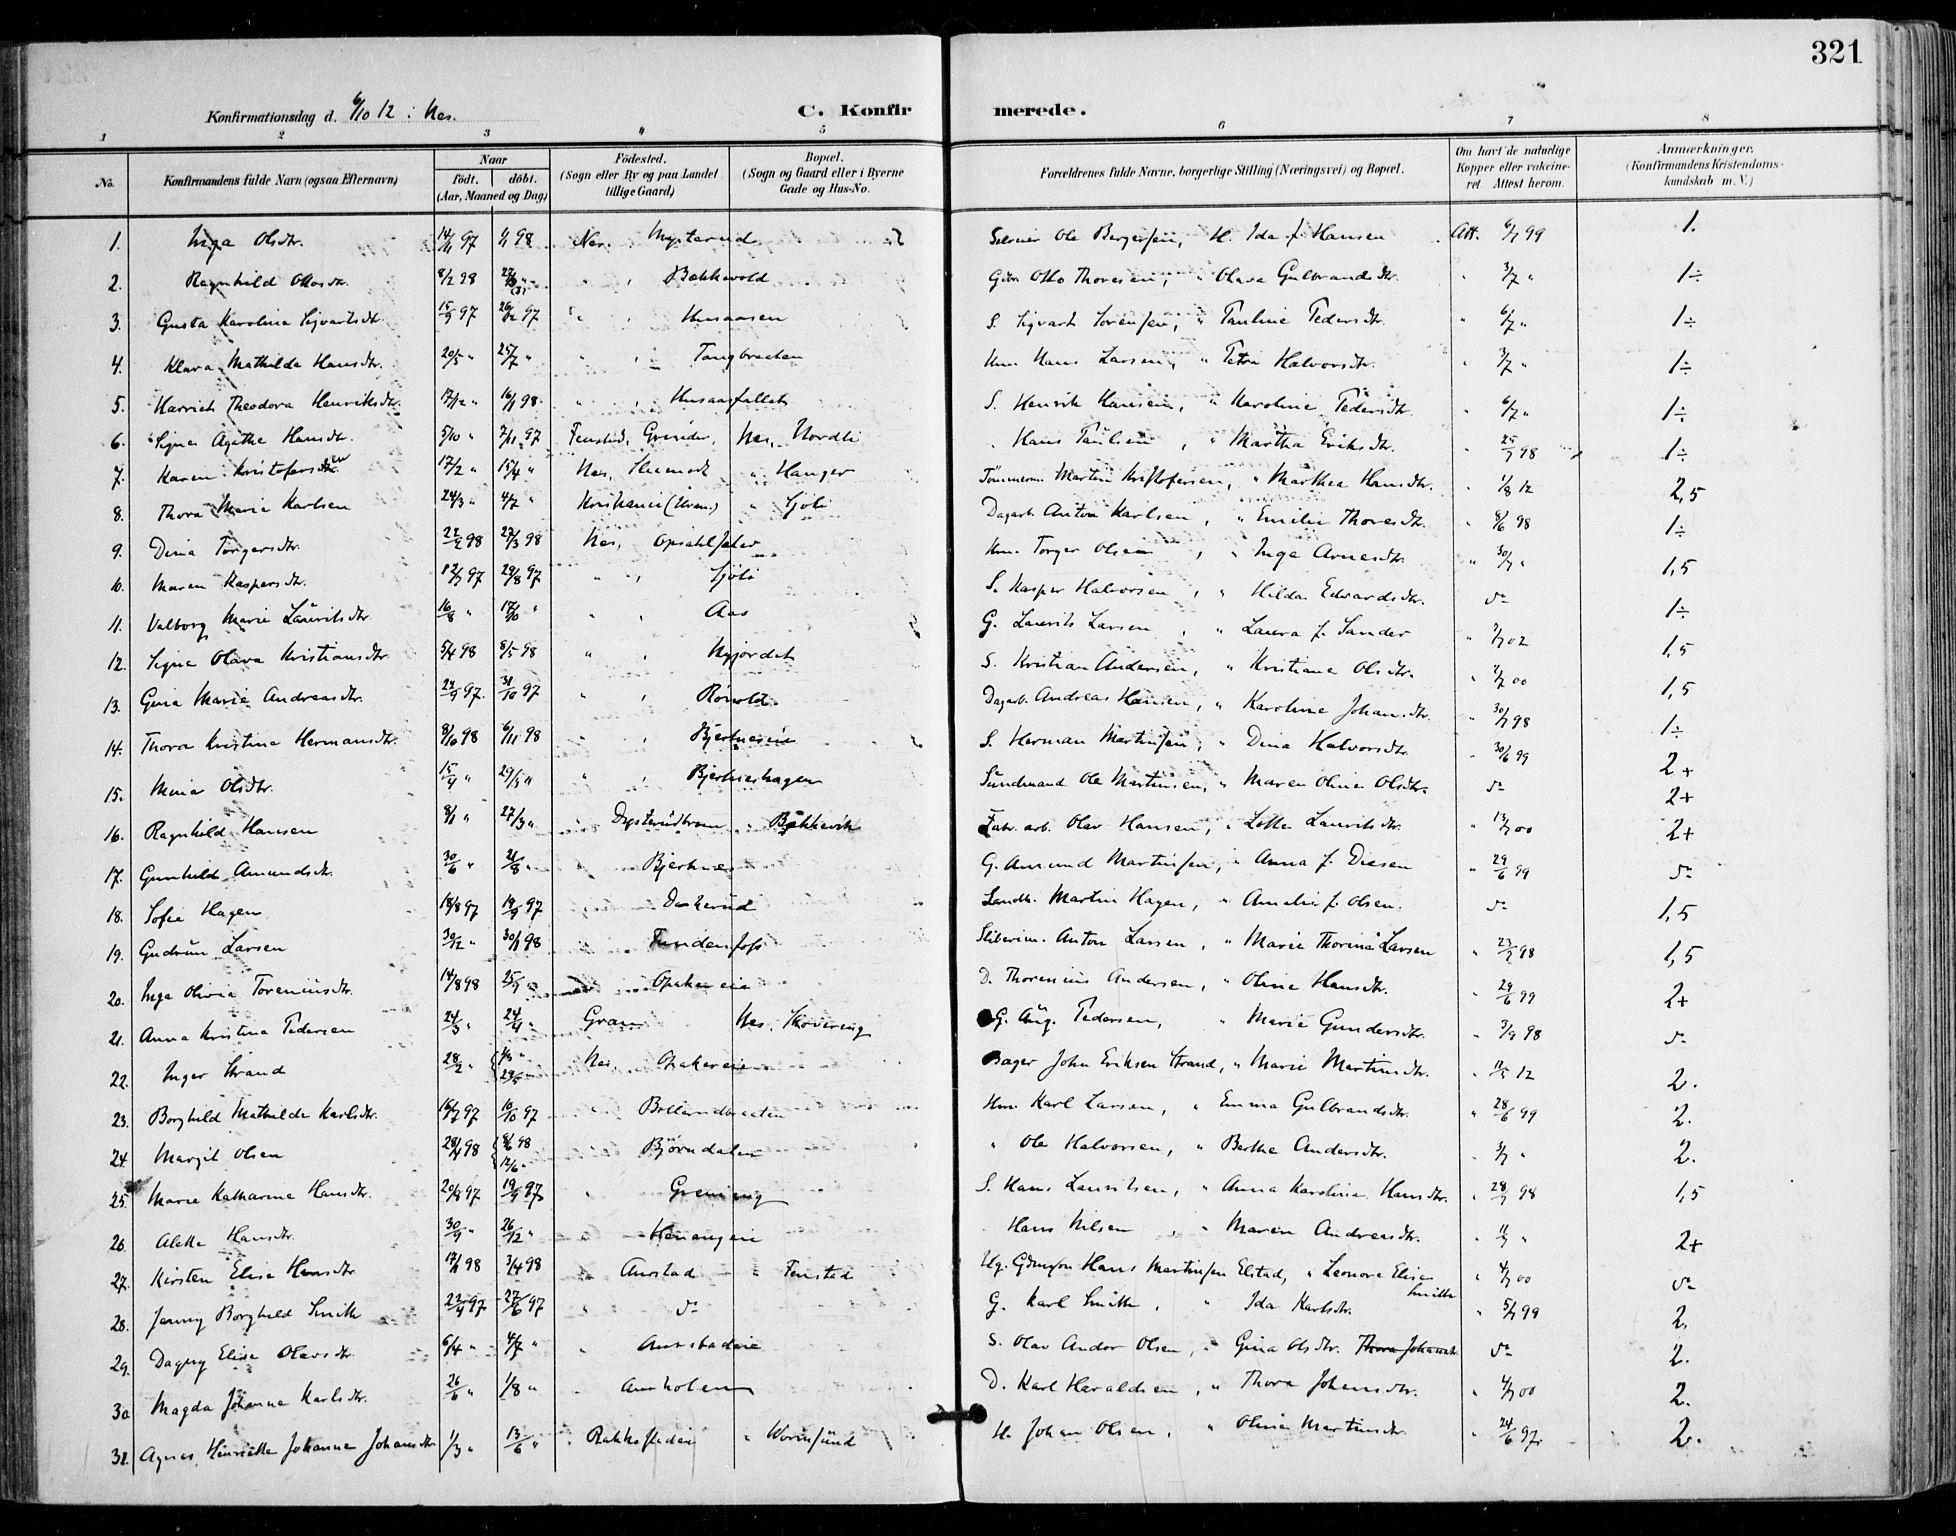 321
Konfirmationsdag d. 6/10 12 i Nes.
C. Konfirmerede.
1 2 3 4 5 6 7 8
No. Konfirmandens fulde Navn (ogsaa Efternavn) Naar födt. döbt. (Aar, Maaned og Dag) Födested. (Sogn eller By og paa Landet tillige Gaard) Bopæl. (Sogn og Gaard eller i Byerne Gade og Hus-No. Forældrenes fulde Navne, borgerlige Stilling (Næringsvei) og Bopæl. Om havt de naturlige Kopper eller vakcineret. Attest herom. Anmærkninger. (Konfirmandens Kristendomskundskab m. V.)
1. Inga Olsdtr. 14/11 97 1/1 98 Nes. Ole Bergersen, H. Ida f. Hansen Att. 6/7 99 1.
2. Ragnhild Ottosdtr. 8/2 98 Bakkevold Gbr. Otto Thoresen, " Olava Gulbrandsdtr. " 3/7 " 1÷
3. Gusta Karoline Sigvartsdtr. 15/9 97 26/12 97 Husaasen S. Sigvart Sörensen, " Pauline Pedersdtr. " 6/7 " 1÷
4. Klara Mathilde Hansdtr. 20/5 " 25/7 " Tangbraaten Hm. Hans Larsen, " Petra Halvorsdtr. " 3/7 " 1÷
5. Harriet Theodora Henriksdtr. 17/12 " 16/1 98. Husaasfallet S. Henrik Hansen, " Karoline Pedersdtr. " 6/7 " 1÷
6. Signe Agathe Hansdtr. 5/10 " 7/11 97 Fenstad, Nes, Nordli Hans Paulsen, " Martha Eriksdtr. " 25/7 98 1÷
7. Karen Kristofersen 17/2 " 15/4 " Nes, " Hanger Tömmerm. Martin Kristofersen, " Marthea Hansdtr. " 1/8 12 2,5
8. Thora Marie Karlsen 24/3 " 4/7 " " Sjöli Dagarb. Anton Karlsen, " Emilie Thoresdtr. " 8/6 98 1÷
9. Dina Torgersdtr. 22/2 98 27/3 98 Nes, Hm. Torger Olsen, " Inga Arnesdtr. " 30/7 " 1,5
10. Maren Kaspersdtr. 12/7 97 29/8 97 " , Sjöli S. Kasper Halvorsen, " Hilda Edvardsdtr. do
11. Valborg Marie Lauritsdtr. 16/8 " 17/10 " " , Aas G. Laurits Larsen, " Laura f. Sander " 02 1÷
12. Signe Olava Kristiansdtr. 5/4 98 8/5 98 " , Nyjordet S. Kristian Andersen, " Kristiane Olsdtr. " 00 1,5
13. Gina Marie Andreasdtr. 97. 31/10 97 " , Dagarb. Andreas Hansen, " Karoline Johansdtr. " 30/7 98 1,5
14. Thora Kristine Hermansdtr. 8/10 98 6/11 98 " , Bjertneseie S. Herman Martinsen, " Dina Halvorsdtr. " 30/6 99 1÷
15. Mina Olsdtr. 15/4 " 29/5 " " , Bjertneshagen Sundmand Ole Martinsen, " Maren Oline Olsdtr. do 2+
16. Ragnhild Hansen 8/1 " 27/3 " Dysterudbraaten " Bakkevik Fabr. arb. Olav Hansen, " Lotte Lauritsdtr. " 13/7 00 2+
17. Gunhild Amundsdtr. 30/6 " 21/8 " Bjertnes G. Amund Martinsen, " Anna f. Diesen " 29/6 99 2+
18. Sofie Hagen 18/8 97 19/9 97 Landh. Martin Hagen, " Amalie f. Olsen. do do
19. Gudrun Larsen 30/12 " 30/1 98 Funnefoss Sliberim. Anton Larsen, " Marie Thorine Larsen " 23/7 98 1,5
20. Inga Olivia Toreniusdtr. 14/8 98 25/9 " Opakereie D. Thorenius Andersen, " Oline Hansdtr. " 29/6 99 1,5
21. Anna Kristina Pedersen 24/3 " 24/4 " Gran Nes, Skovering G. Aug. Pedersen, " Marie Gundersdtr. " 3/9 98 2+
22. Inger Strand 28/2 " Nes, Opakereie Bager John Eriksen Strand, " Marie Martinsdtr. " 12 do
23. Borghild Mathilde Karlsdtr. 16/7 97 10/10 97 " Hm. Karl Larsen, " Emma Gulbrandsdtr. " 28/6 99 2.
24. Margit Olsen 28/4 98 8/6 98 12/6 " " Björndalen " Ole Halvorsen, " Berthe Andersdtr. " 3/7 " 2.
25. Marie Katharine Hansdtr. 20/8 97 19/9 97 " Grening S. Hans Lauritsen, " Anna Karoline Hansdtr. " 28/7 98 2.
26. Alette Hansdtr. 30/9 " 26/12 " " Henungeie Hans Nilsen, " Maren Andreasdtr. " " 1,5
27. Kirsten Elise Hansdtr. 98 3/4 98 " Aurstad " Fenstad Hans Martinsen Elstad, " Leonore Elise Smith " 4/7 00 2+
28. Jenny Borghild Smith 22/4 97 27/6 97 " do G. Karl Smith, " Ida Karlsdtr. " 5/7 99 do
29. Dagny Elise Olavsdtr. 6/4 " 4/7 " " Aurstadeie S. Olav Andor Olsen, " Gina Olsdtr. Thora Johansdtr. do 2.
30 Magda Johanne Karlsdtr. 26/6 " 1/8 " " Aurholen D. Karl Haraldsen, " Thora Johansdtr. " 4/7 00 2.
31. Agnes Henriette Johanne Johansdtr. 1/3 " 13/6 " " " Wormsund H. Johan Olsen, " Oline Martinsdtr. " 24/6 97. 2.